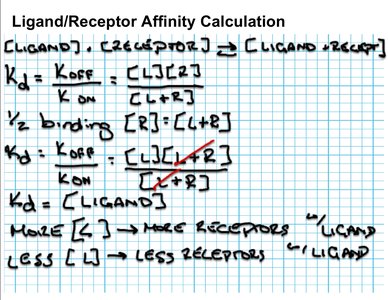 Ligand/Receptor Affinity Calculation
[LIGAND] · [RECEPTOR] ⇌ [LIGAND +RECEPT]
Kd = KOFF / KON = [L][R] / [L+R]
1/2 binding [R]=[L+R]
Kd = KOFF / KON = [L][L+R] / [L+R]
Kd = [LIGAND]
MORE [L] → MORE RECEPTORS w/ LIGAND
LESS [L] → LESS RECEPTORS w/ LIGAND